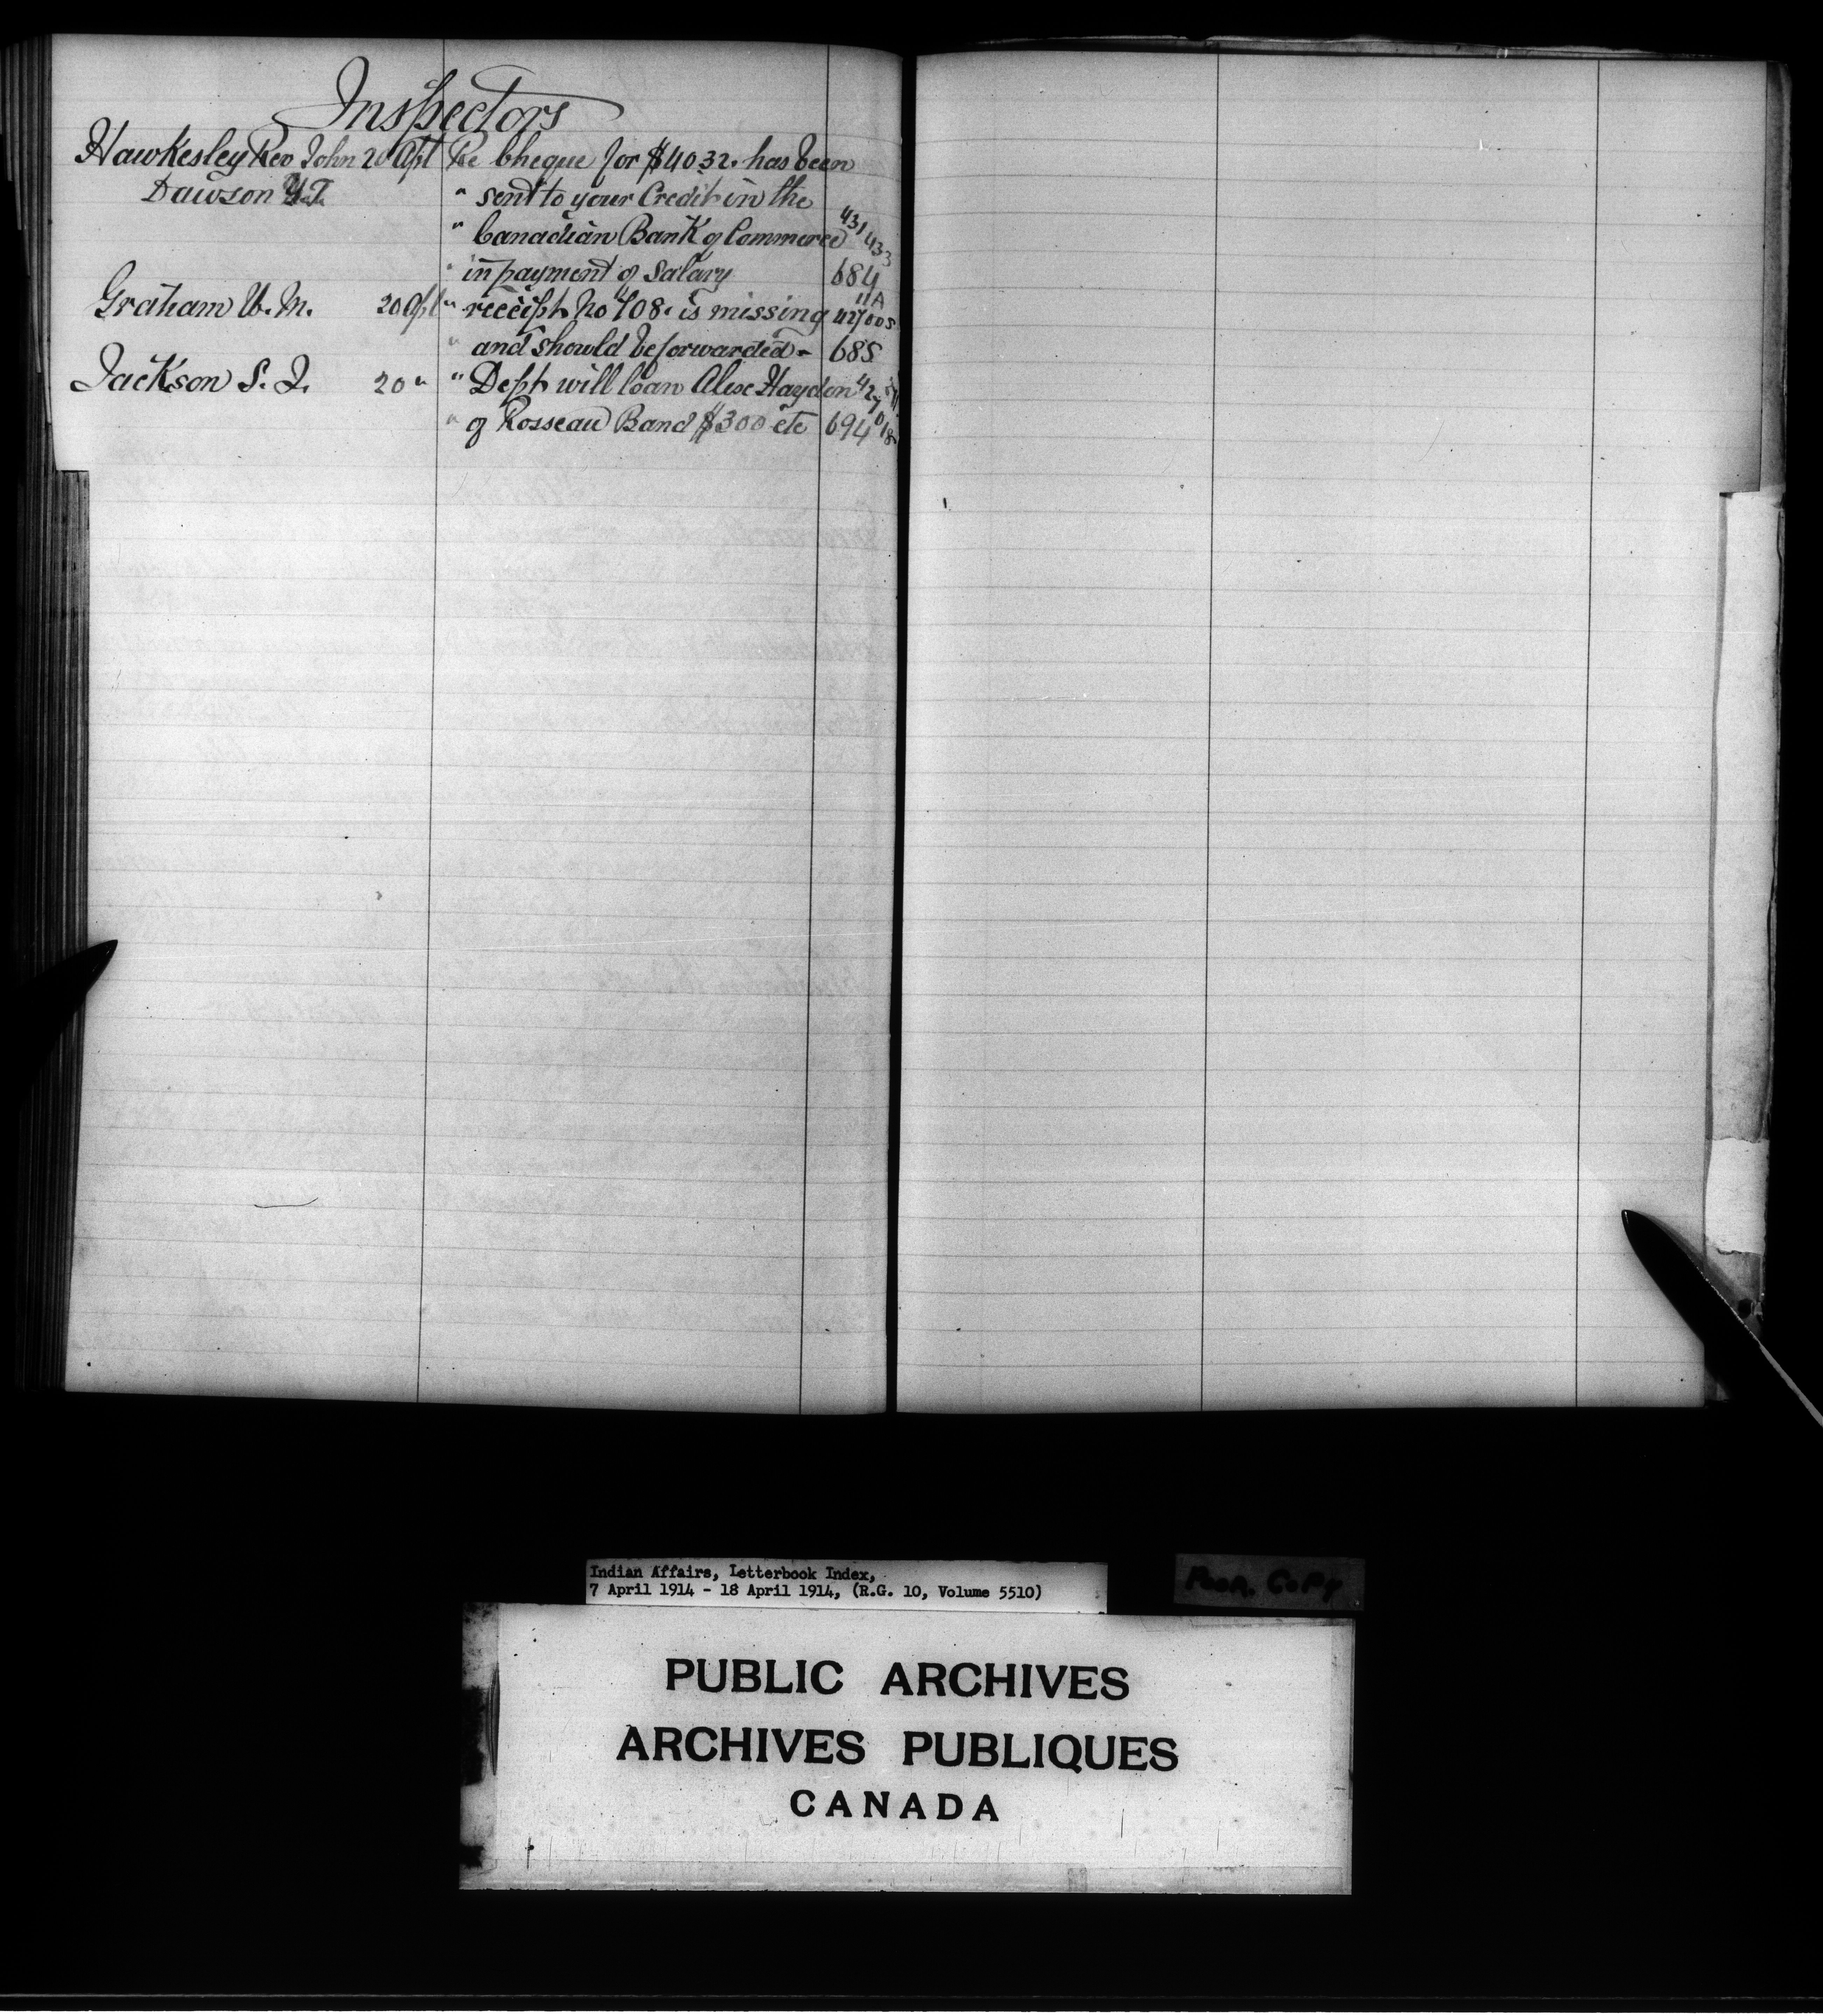 Inspectors
Hawkesley Rev John 20 Apl Re Cheque for $40.32. has been
Dawson Y.T. " sent to your Credit in the
" Canadian Bank of Commerce 431433
" in payment of Salary 684
Graham W. M. 20 Apl " receipt No 408. is missing 427005 11A
" and should be forwarded - 685
Jackson S. J. 20 " " Dept will loan Alex Hayden 427018
" of Rosseau Band $300 etc 694
Indian Affairs, Letterbook Index,
7 April 1914 - 18 April 1914, (R.G. 10, Volume 5510)
Poor. Copy
PUBLIC ARCHIVES
ARCHIVES PUBLIQUES
CANADA